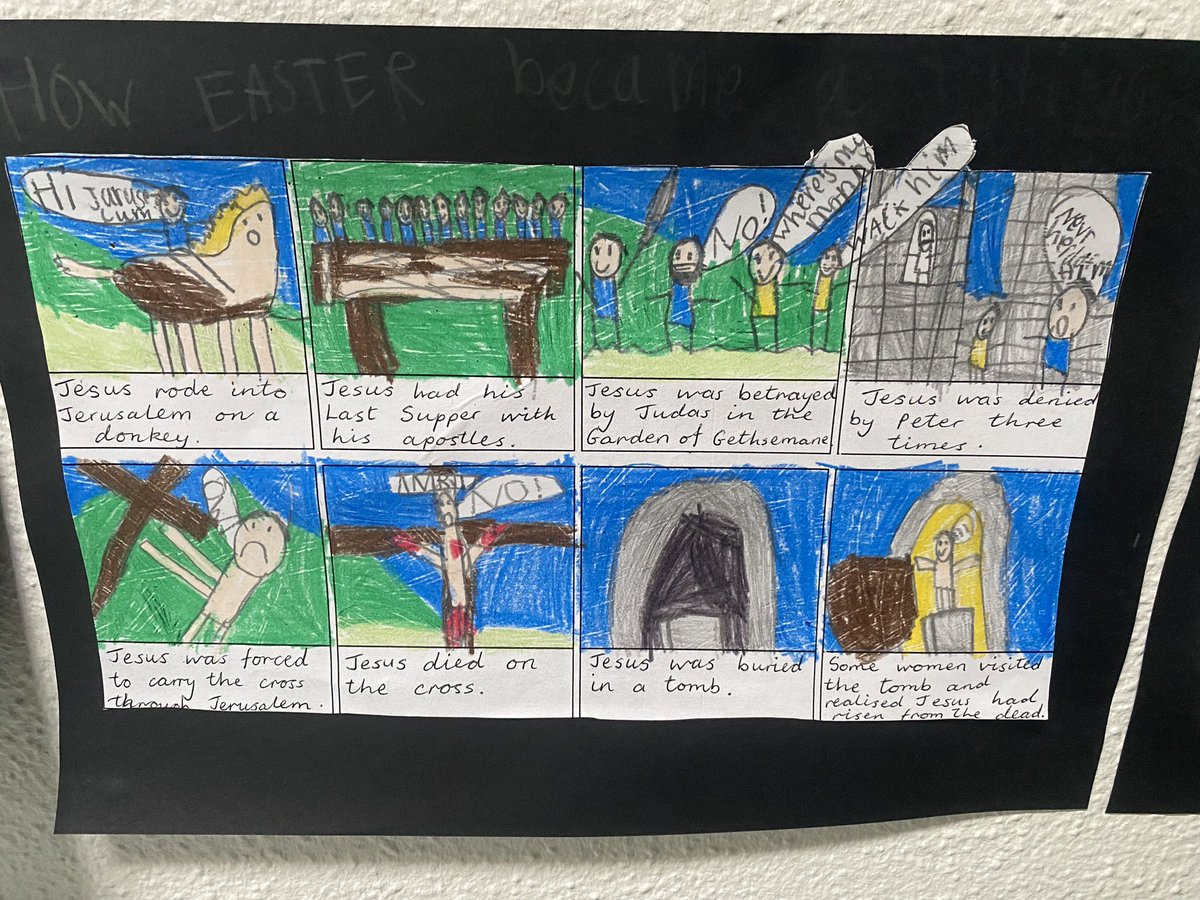 HOW EASTER became a thing
Hi Jaruse
lum
NO!
where's my
mummy
WACK him
Nevr
HIM
Jesus rode into
Jerusalem on a
donkey.
Jesus had his
Last Supper with
his apostles.
Jesus was betrayed
by Judas in the
Garden of Gethsemane
Jesus was denied
by Peter three
times.
INRI
NO!
Jesus was forced
to carry the cross
through Jerusalem.
Jesus died on
the cross.
Jesus was buried
in a tomb.
Some women visited
the tomb and
realised Jesus had
risen from the dead.